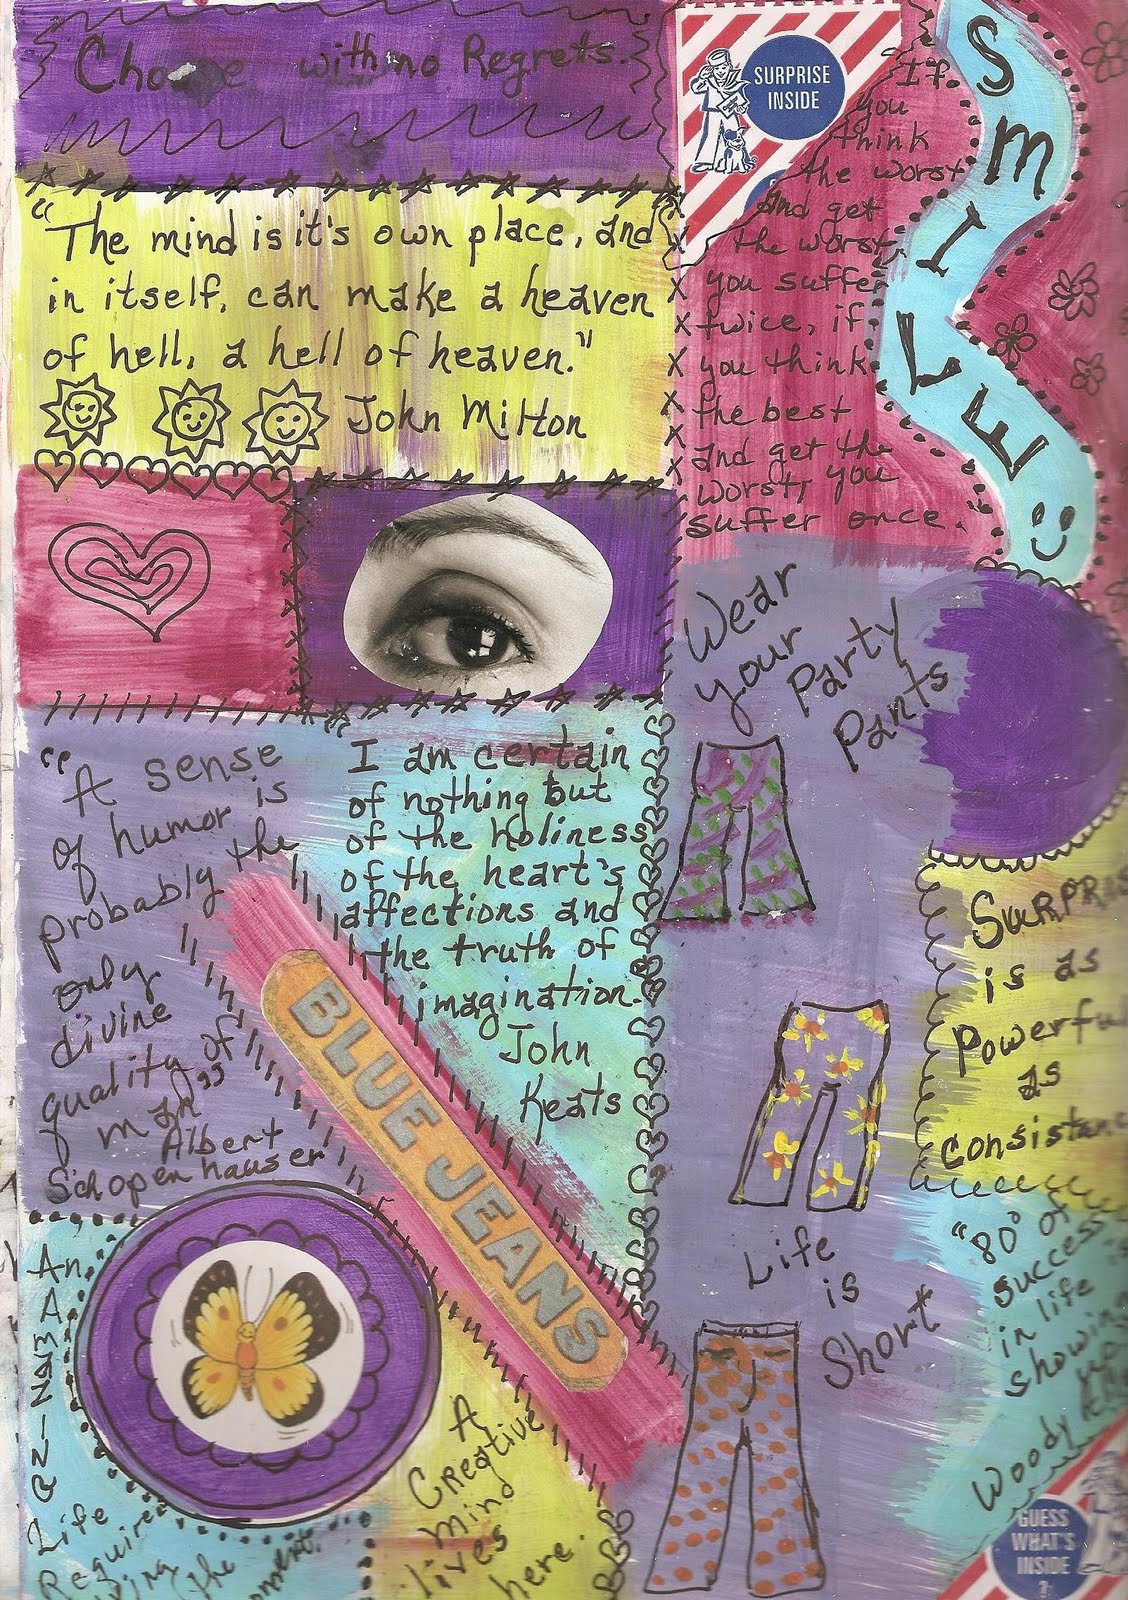 Choose with no Regrets.
SURPRISE
INSIDE
SMILE
"The mind is it's own place, and
in itself, can make a heaven
of hell, a hell of heaven."
John Milton
If
you
think
the worst
and get
the worst,
you suffer
twice, if
you think
the best
and get the
worst, you
suffer once.
Wear
your
Party
Pants
"A sense
of humor is
probably the
only
divine
quality of
man"
Albert
Schopenhauser
I am certain
of nothing but
of the holiness
of the heart's
affections and
the truth of
imagination.
John
Keats
BLUE JEANS
is as
Powerful
as
"80% of
success
in life is
showing
Woody
Life
is
Short
A
Creative
mind
lives
here.
Life
the
GUESS
WHAT'S
INSIDE
?